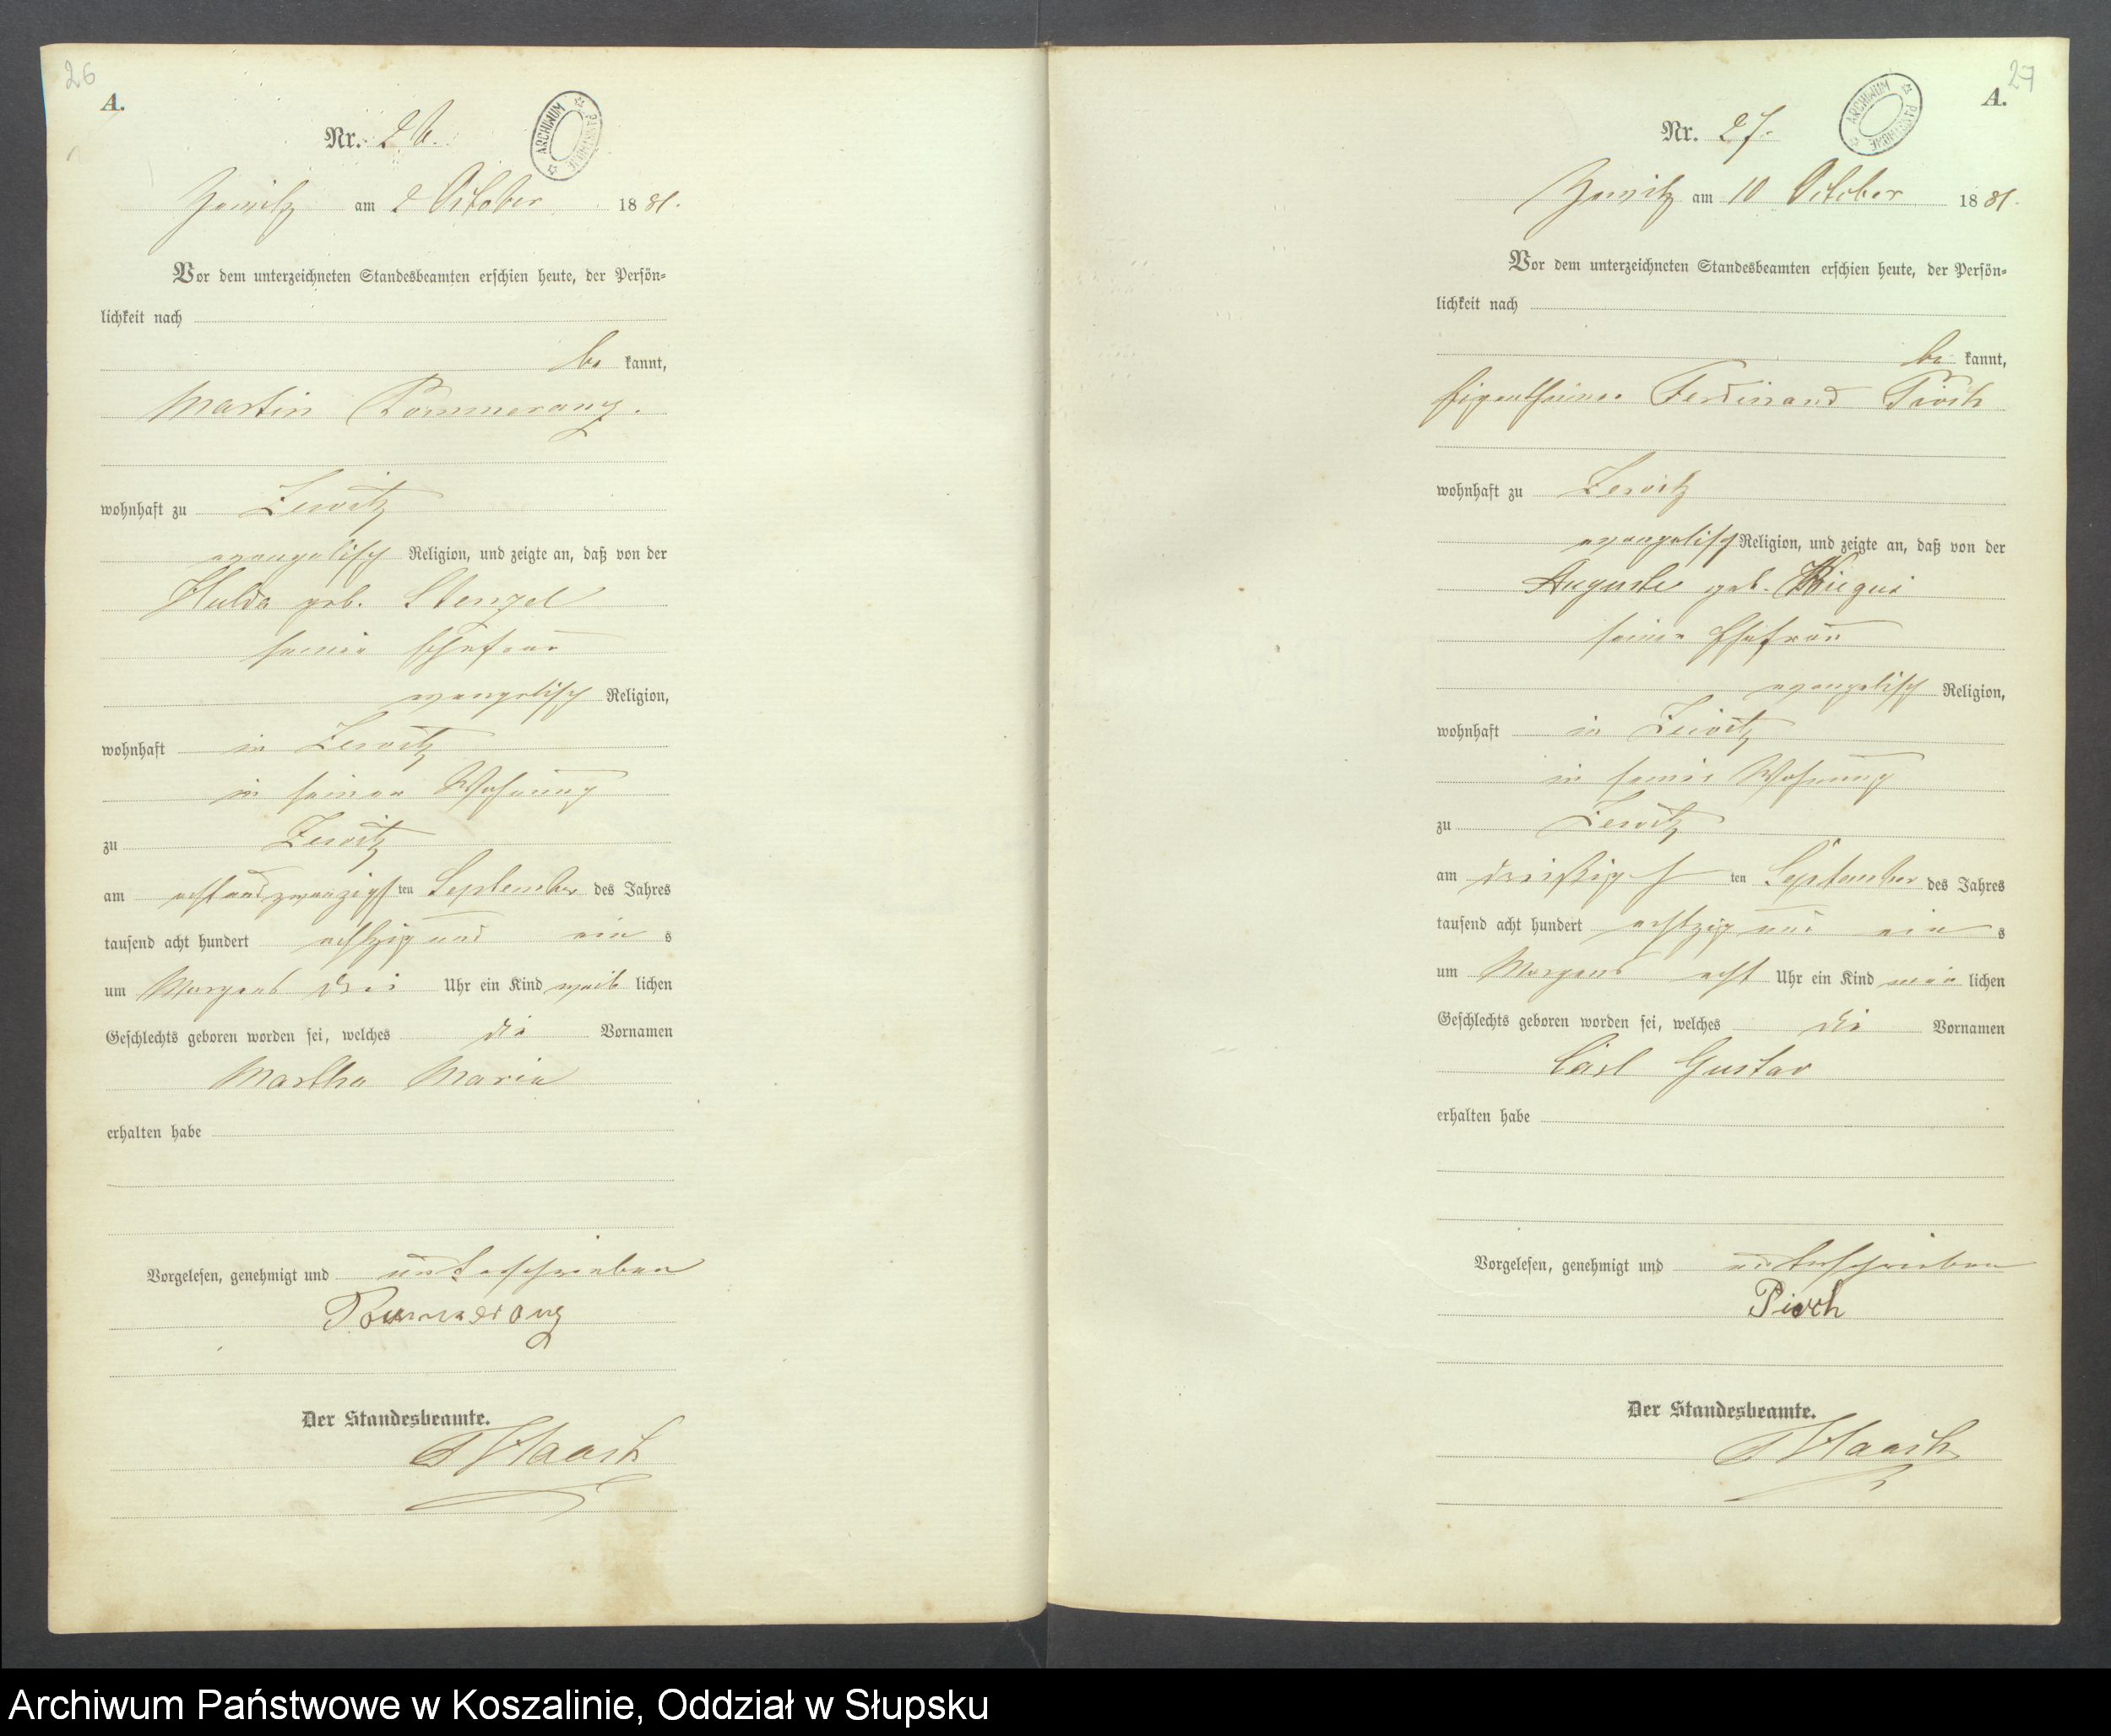 26
A.
Nr. 26.
ARCHIWUM PAŃSTWOWE
Zewitz am 2 October 1881.
Vor dem unterzeichneten Standesbeamten erschien heute, der Persön-
lichkeit nach
be kannt,
Martin Pommerang.
wohnhaft zu Zewitz
evangelisch Religion, und zeigte an, daß von der
Hulda geb. Stenzel
seiner Ehefrau
evangelisch Religion,
wohnhaft in Zewitz
in seiner Wohnung
zu Zewitz
am achtundzwanzigsten September des Jahres
tausend acht hundert achtzig und ein s
um Morgens drei Uhr ein Kind weib lichen
Geschlechts geboren worden sei, welches die Vornamen
Martha Maria
erhalten habe
Vorgelesen, genehmigt und unterschrieben
Pommerang
Der Standesbeamte.
Haask
27
A.
Nr. 27.
ARCHIWUM PAŃSTWOWE
Zewitz am 10 October 1881.
Vor dem unterzeichneten Standesbeamten erschien heute, der Persön-
lichkeit nach
be kannt,
Eigenthümer Ferdinand Pioch
wohnhaft zu Zewitz
evangelisch Religion, und zeigte an, daß von der
Auguste geb.
seiner Ehefrau
evangelisch Religion,
wohnhaft in Zewitz
in seiner Wohnung
zu Zewitz
am dreißigsten September des Jahres
tausend acht hundert achtzig und ein s
um Morgens acht Uhr ein Kind män lichen
Geschlechts geboren worden sei, welches die Vornamen
Carl Gustav
erhalten habe
Vorgelesen, genehmigt und unterschrieben
Pioch
Der Standesbeamte.
Haask
Archiwum Państwowe w Koszalinie, Oddział w Słupsku